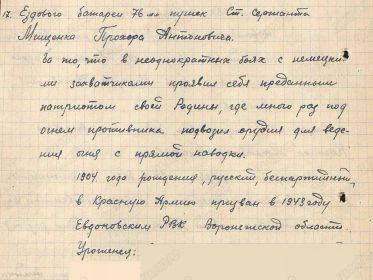 17. Ездового батареи 76 мм пушек Ст. Сержанта
Мищенка Прохора Антоновича.
За то, что в неоднократных боях с немецки-
ми захватчиками проявил себя преданным
патриотом своей Родины, где много раз под
огнем противника подводил орудия для веде-
ния огня с прямой наводки.
1904 года рождения, русский, беспартийный,
в Красную Армию призван в 1943 году
Евдоковским РВК Воронежской области.
Уроженец: